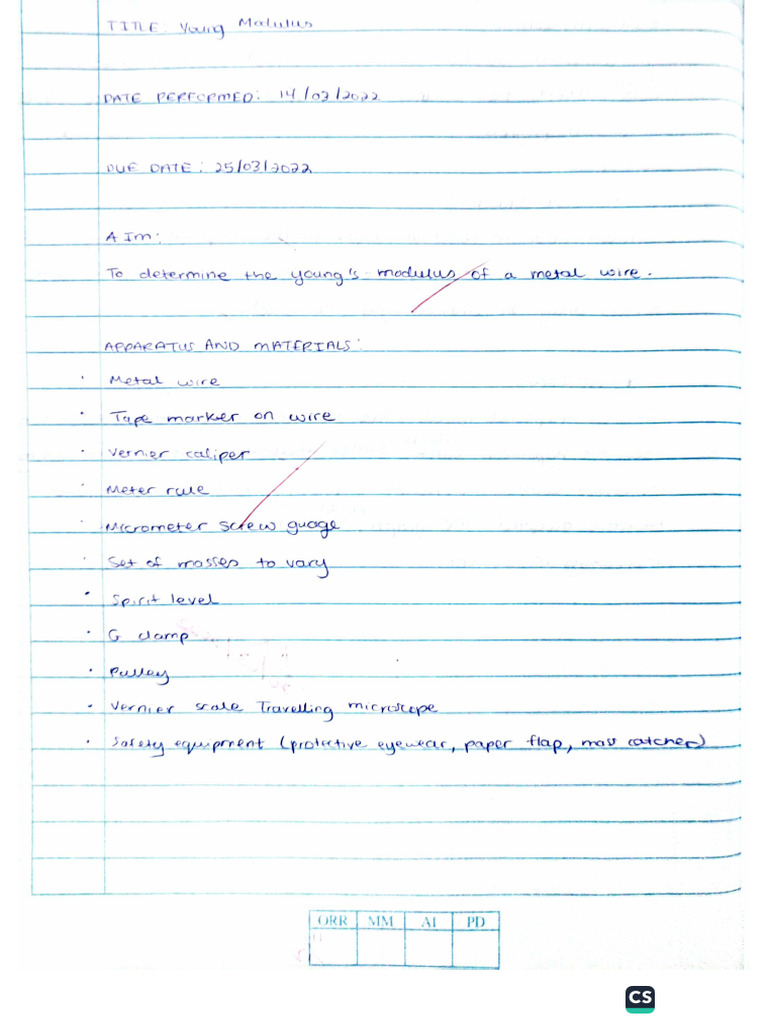 TITLE: Young Modulus
DATE PERFORMED: 14/03/2022
DUE DATE: 25/03/2022
AIM:
To determine the young's modulus of a metal wire.
APPARATUS AND MATERIALS:
· Metal wire
· Tape marker on wire
· Vernier caliper
· Meter rule
· Micrometer screw guage
· Set of masses to vary
· Spirit level
· G clamp
· Pulley
· Vernier scale Travelling microscope
· Safety equipment (protective eyewear, paper flap, mass catcher)
ORR MM AI PD
CS